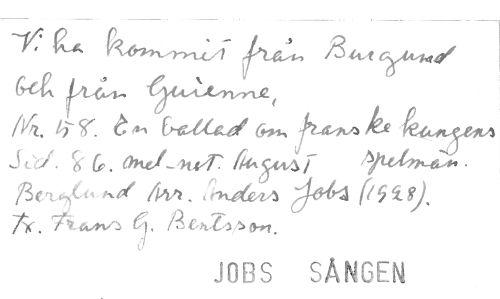 Vi ha kommit från Burgund
och från Guienne,
Nr. 58. En ballad om franske kungens
Sid. 86. mel-not. August spelmän.
Berglund Arr. Anders Jobs (1928).
Tx. Frans G. Bentsson.
JOBS SÅNGEN